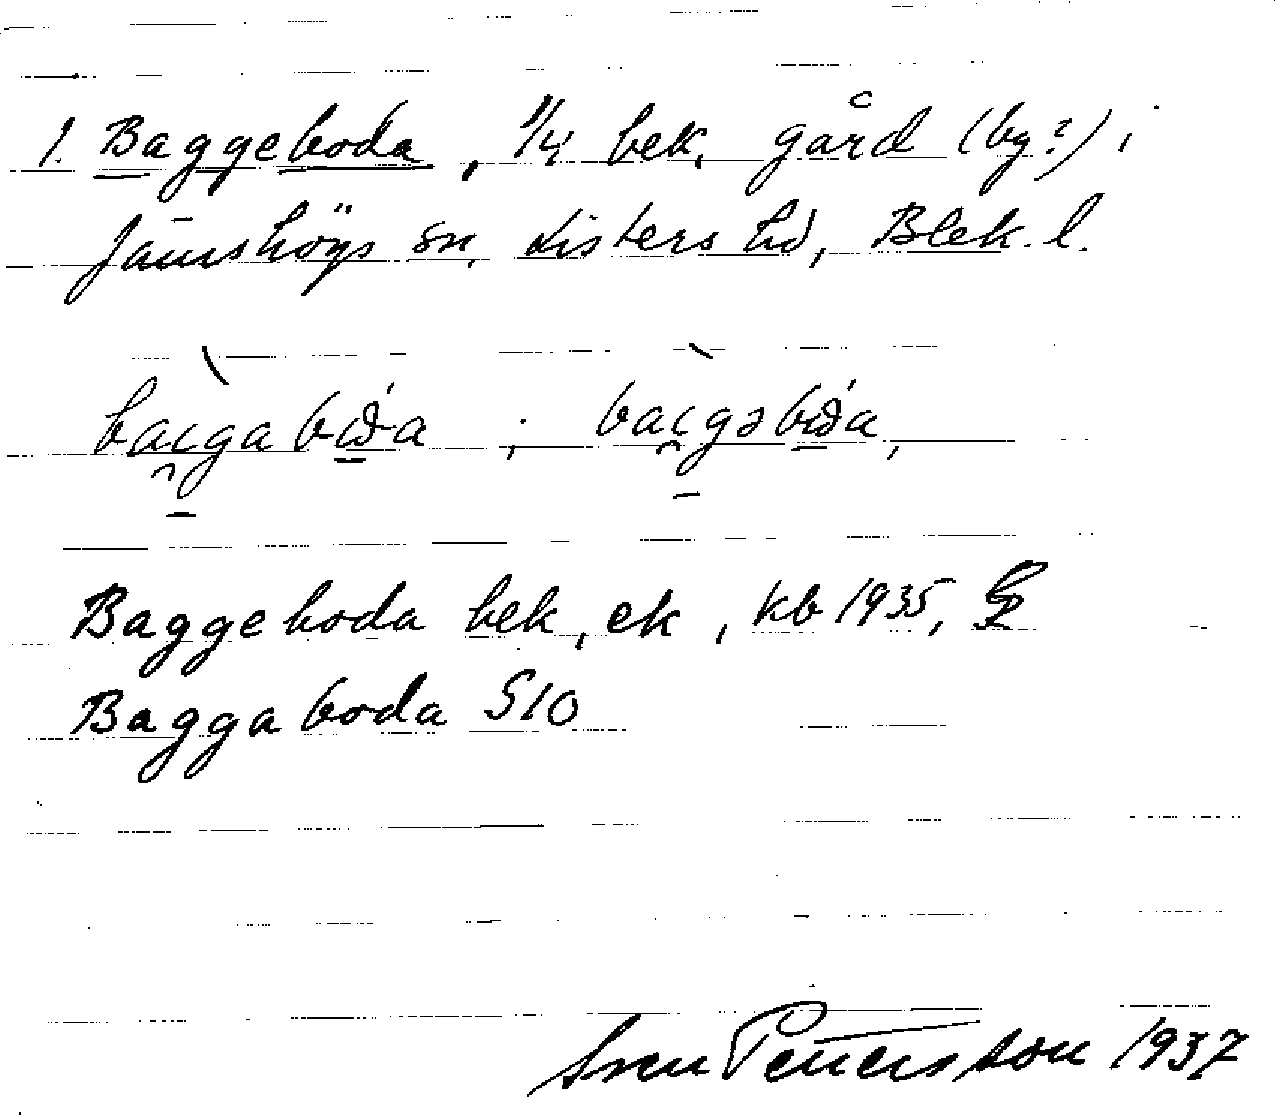 1. Baggeboda, 1/4 bek. gård (by?) i
Jämshögs sn, Listers hd, Blek. l.
Baggeboda bek, ek, kb 1935,
Baggaboda S10
Sven Pettersson 1937